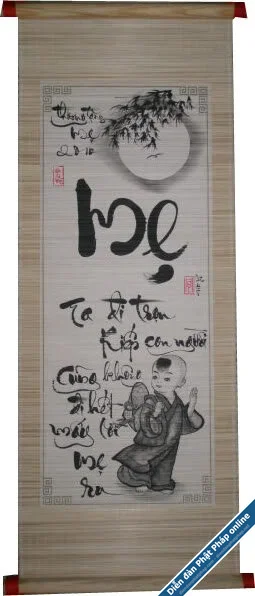 Thương tặng
Mẹ
20-10
Mẹ
Ta đi trọn
Kiếp con người
Cũng không
đi hết
mấy lời
mẹ
ru
Diễn đàn Phật Pháp online